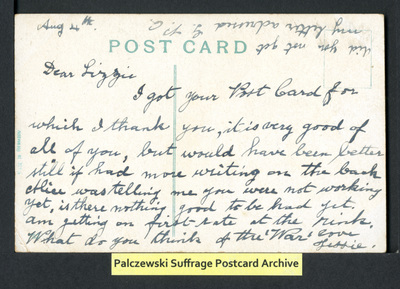 Aug 4th.
did you not get
my letter adressed G.P.O.
POST CARD
Dear Lizzie
I got your Post Card for
which I thank you, it is very good of
all of you, but would have been better
still if had more writing on the back
Alice was telling me you were not working
yet, is there nothing good to be had yet.
am getting on first-rate at the rink.
What do you think of the "War" love
Jessie.
Palczewski Suffrage Postcard Archive